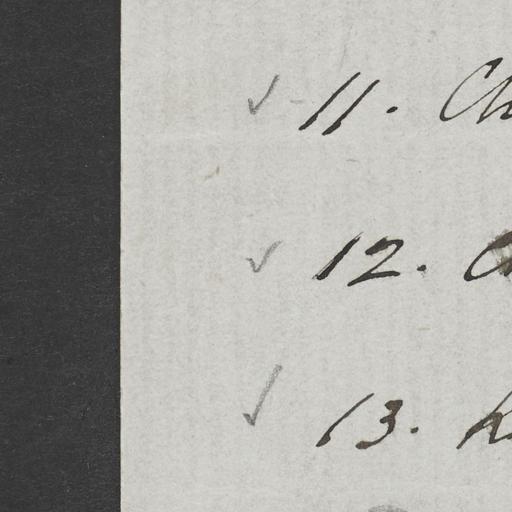 ✓ 11. Ch
✓ 12. C
✓ 13. K